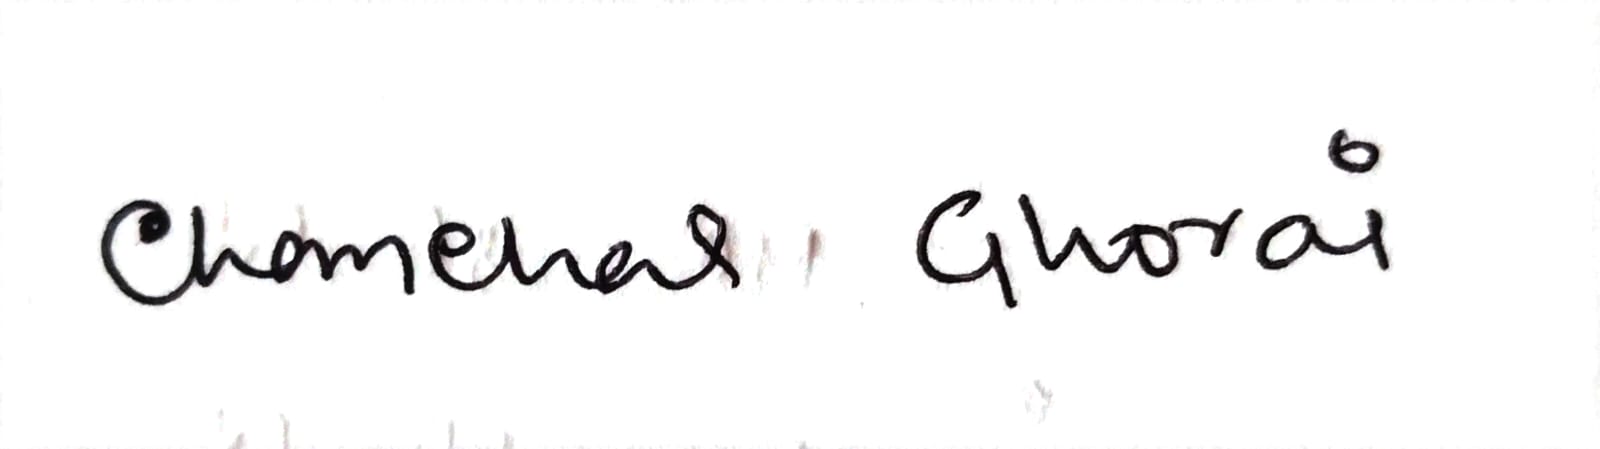 Chanchal Ghorai